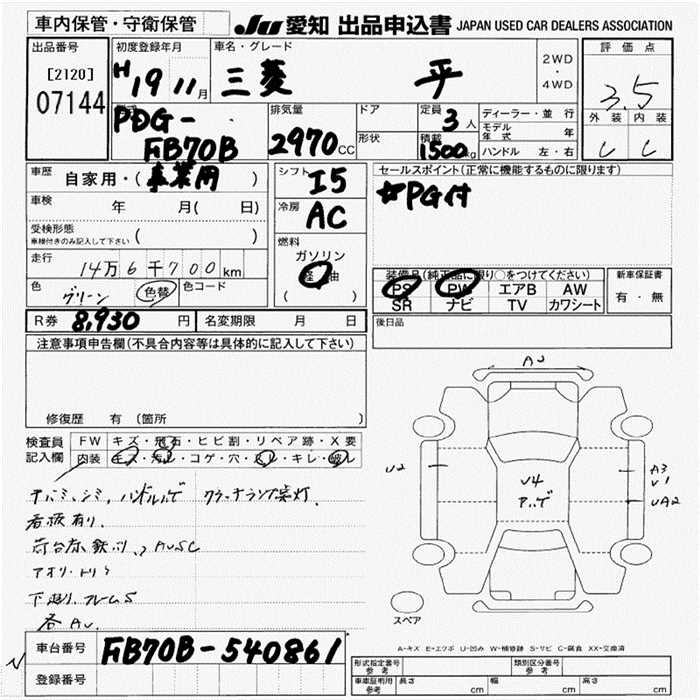 車内保管・守衛保管
JU 愛知 出品申込書 JAPAN USED CAR DEALERS ASSOCIATION
出品番号
[2120]
07144
初度登録年月
H 19 11月
車名・グレード
三菱 平
2WD
・
4WD
評価点
3.5
外装 内装
型式
PDG-
FB70B
排気量
2970 CC
ドア
形状
定員
3人
積載
1500kg
ディーラー・並行
モデル年式 年
ハンドル 左・右
車歴
自家用・(事業用)
車検
年 月( 日)
受検形態
車検付きのみ記入して下さい ( )
走行
14万6千700km
色
グリーン
色替
色コード
シフト
I5
冷房
AC
燃料
ガソリン
軽油
( )
セールスポイント(正常に機能するものに限ります)
☆PG付
装備品(純正品に限り○をつけてください)
PS PW エアB AW
SR ナビ TV カワシート
新車保証書
有・無
R券 8,930円
名変期限 月 日
後日品
注意事項申告欄(不具合内容等は具体的に記入して下さい)
修復歴 有(箇所 )
検査員
記入欄
FW キズ・飛石・ヒビ割・リペア跡・X要
内装 キズ・汚レ・コゲ・穴・スレ・キレ・破レ
シミ、ハンドルハゲ
看板有り
AUSC
下廻り、フレームS
各AU
AU
U2
U4
アハゲ
A3
U1
UA2
スペア
A-キズ E-エクボ U-凹み W-補修跡 S-サビ C-腐食 XX-交換済
車台番号 FB70B-540861
登録番号
形式指定番号
参考
類別区分番号
参考
車庫証明用
参考
長さ cm 幅 cm 高さ cm